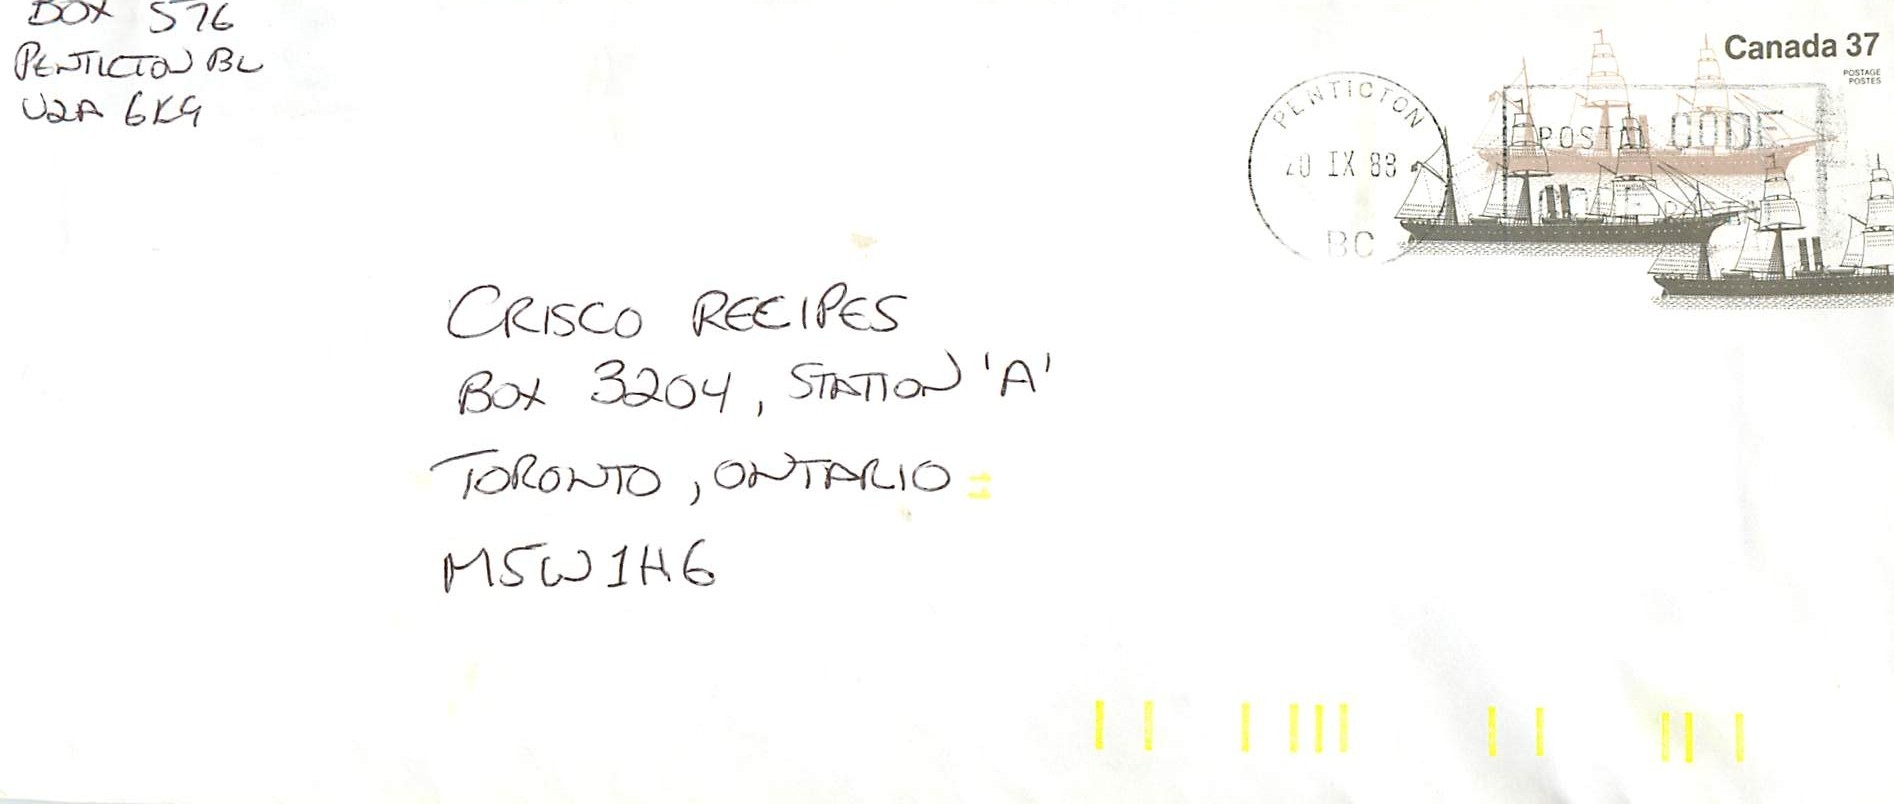 BOX 576
PENTICTON BC
V2A 6K9
Canada 37
POSTAGE
POSTES
PENTICTON
20 IX 88
BC
POSTAL CODE
CRISCO RECIPES
BOX 3204, STATION 'A'
TORONTO, ONTARIO
M5W1H6